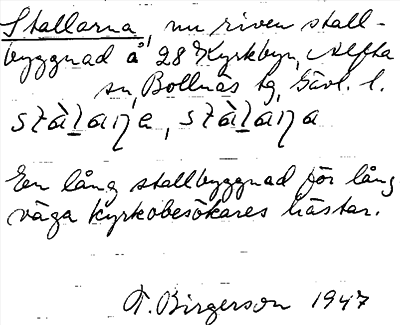 Stallarna, nu riven stall-
byggnad å 28 Kyrkbyn, Alfta
sn, Bollnäs tg, Gävl. l.
stàlaŋe, stàlaŋa
En lång stallbyggnad för lång
väga kyrkobesökares hästar.
T. Birgerson 1947